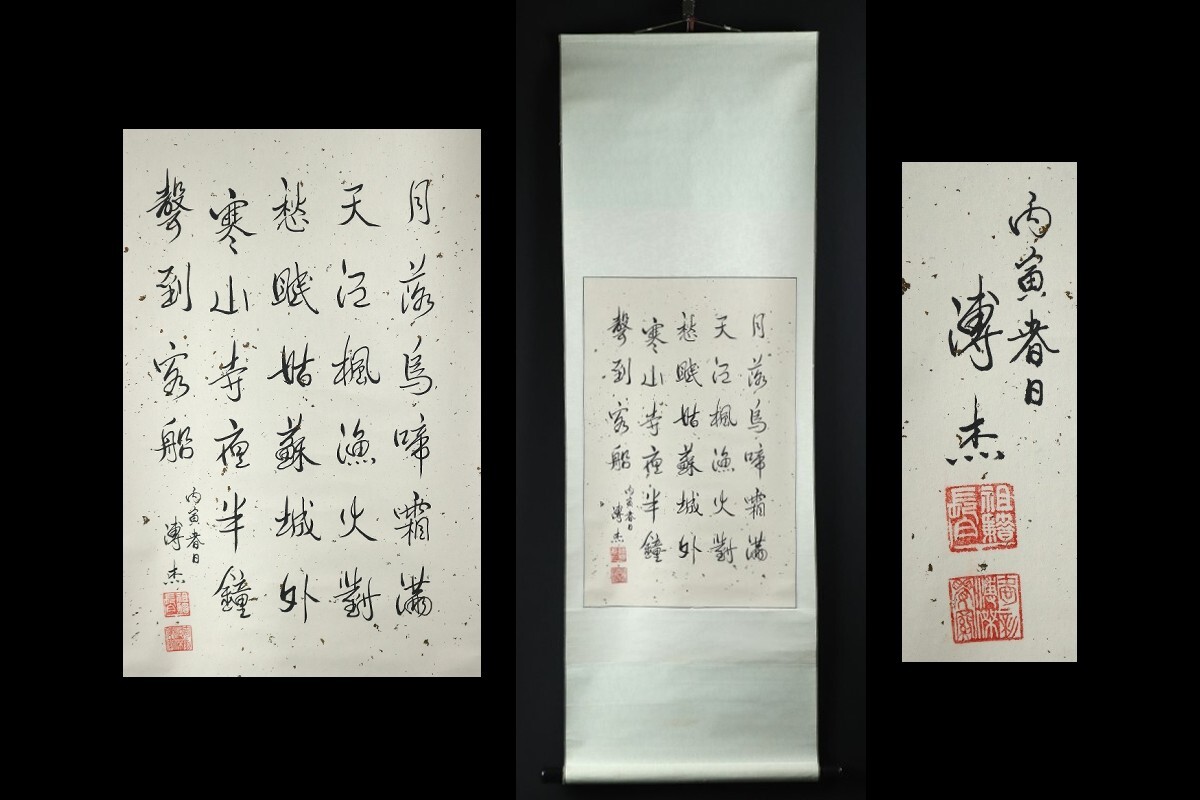 月落烏啼霜滿
天江楓漁火對
愁眠姑蘇城外
寒山寺夜半鐘
聲到客船
丙寅春日
溥杰
月落烏啼霜滿
天江楓漁火對
愁眠姑蘇城外
寒山寺夜半鐘
聲到客船
丙寅春日
溥杰
丙寅春日
溥杰
祖籍
長白